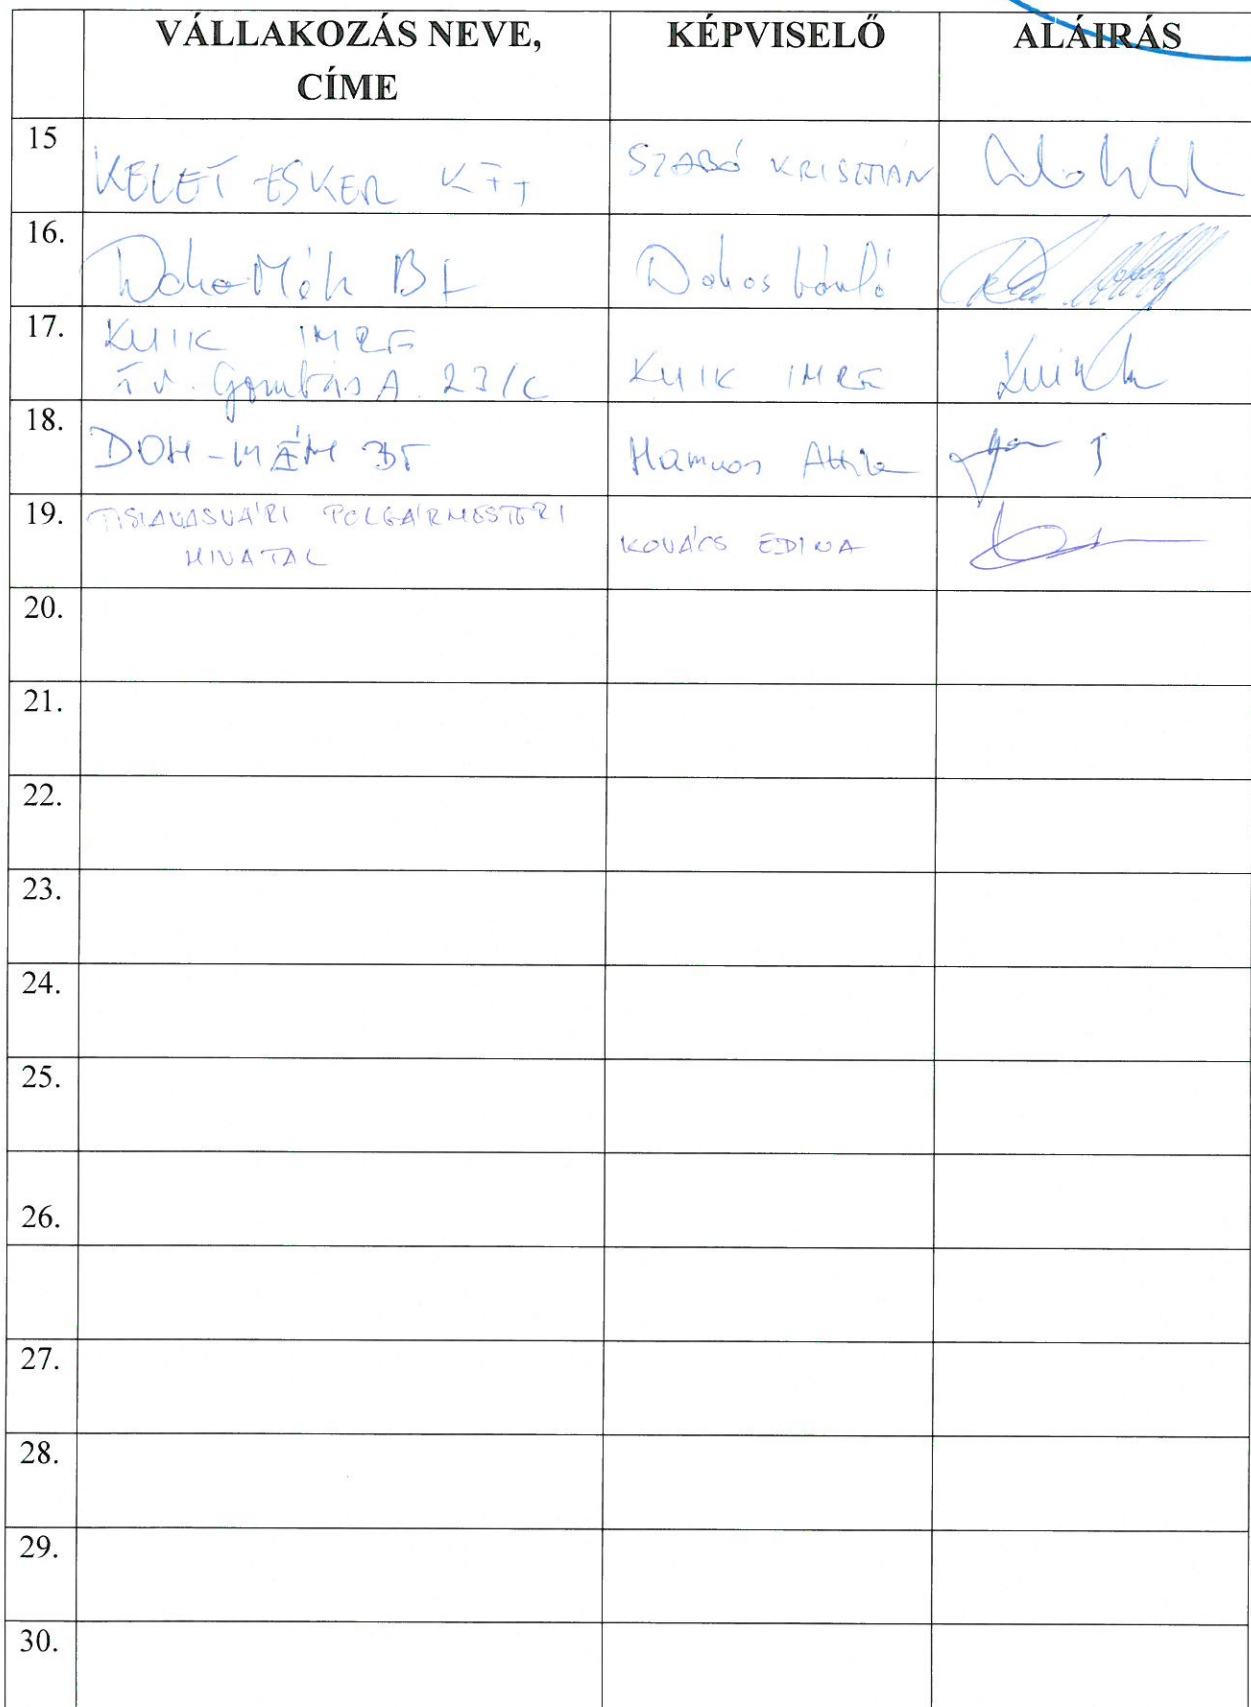 VÁLLAKOZÁS NEVE, CÍME KÉPVISELŐ ALÁIRÁS
15 KELET-ESKER KFT SZABÓ KRISZTIÁN
16. Bt Dakos
17. KUIK IMRE
TV. Gombás A. 23/C KUIK IMRE
18. DOH-MÉM BT Hamvos Attila
19. TISZAVASVÁRI POLGÁRMESTERI
HIVATAL KOVÁCS EDINA
20.
21.
22.
23.
24.
25.
26.
27.
28.
29.
30.